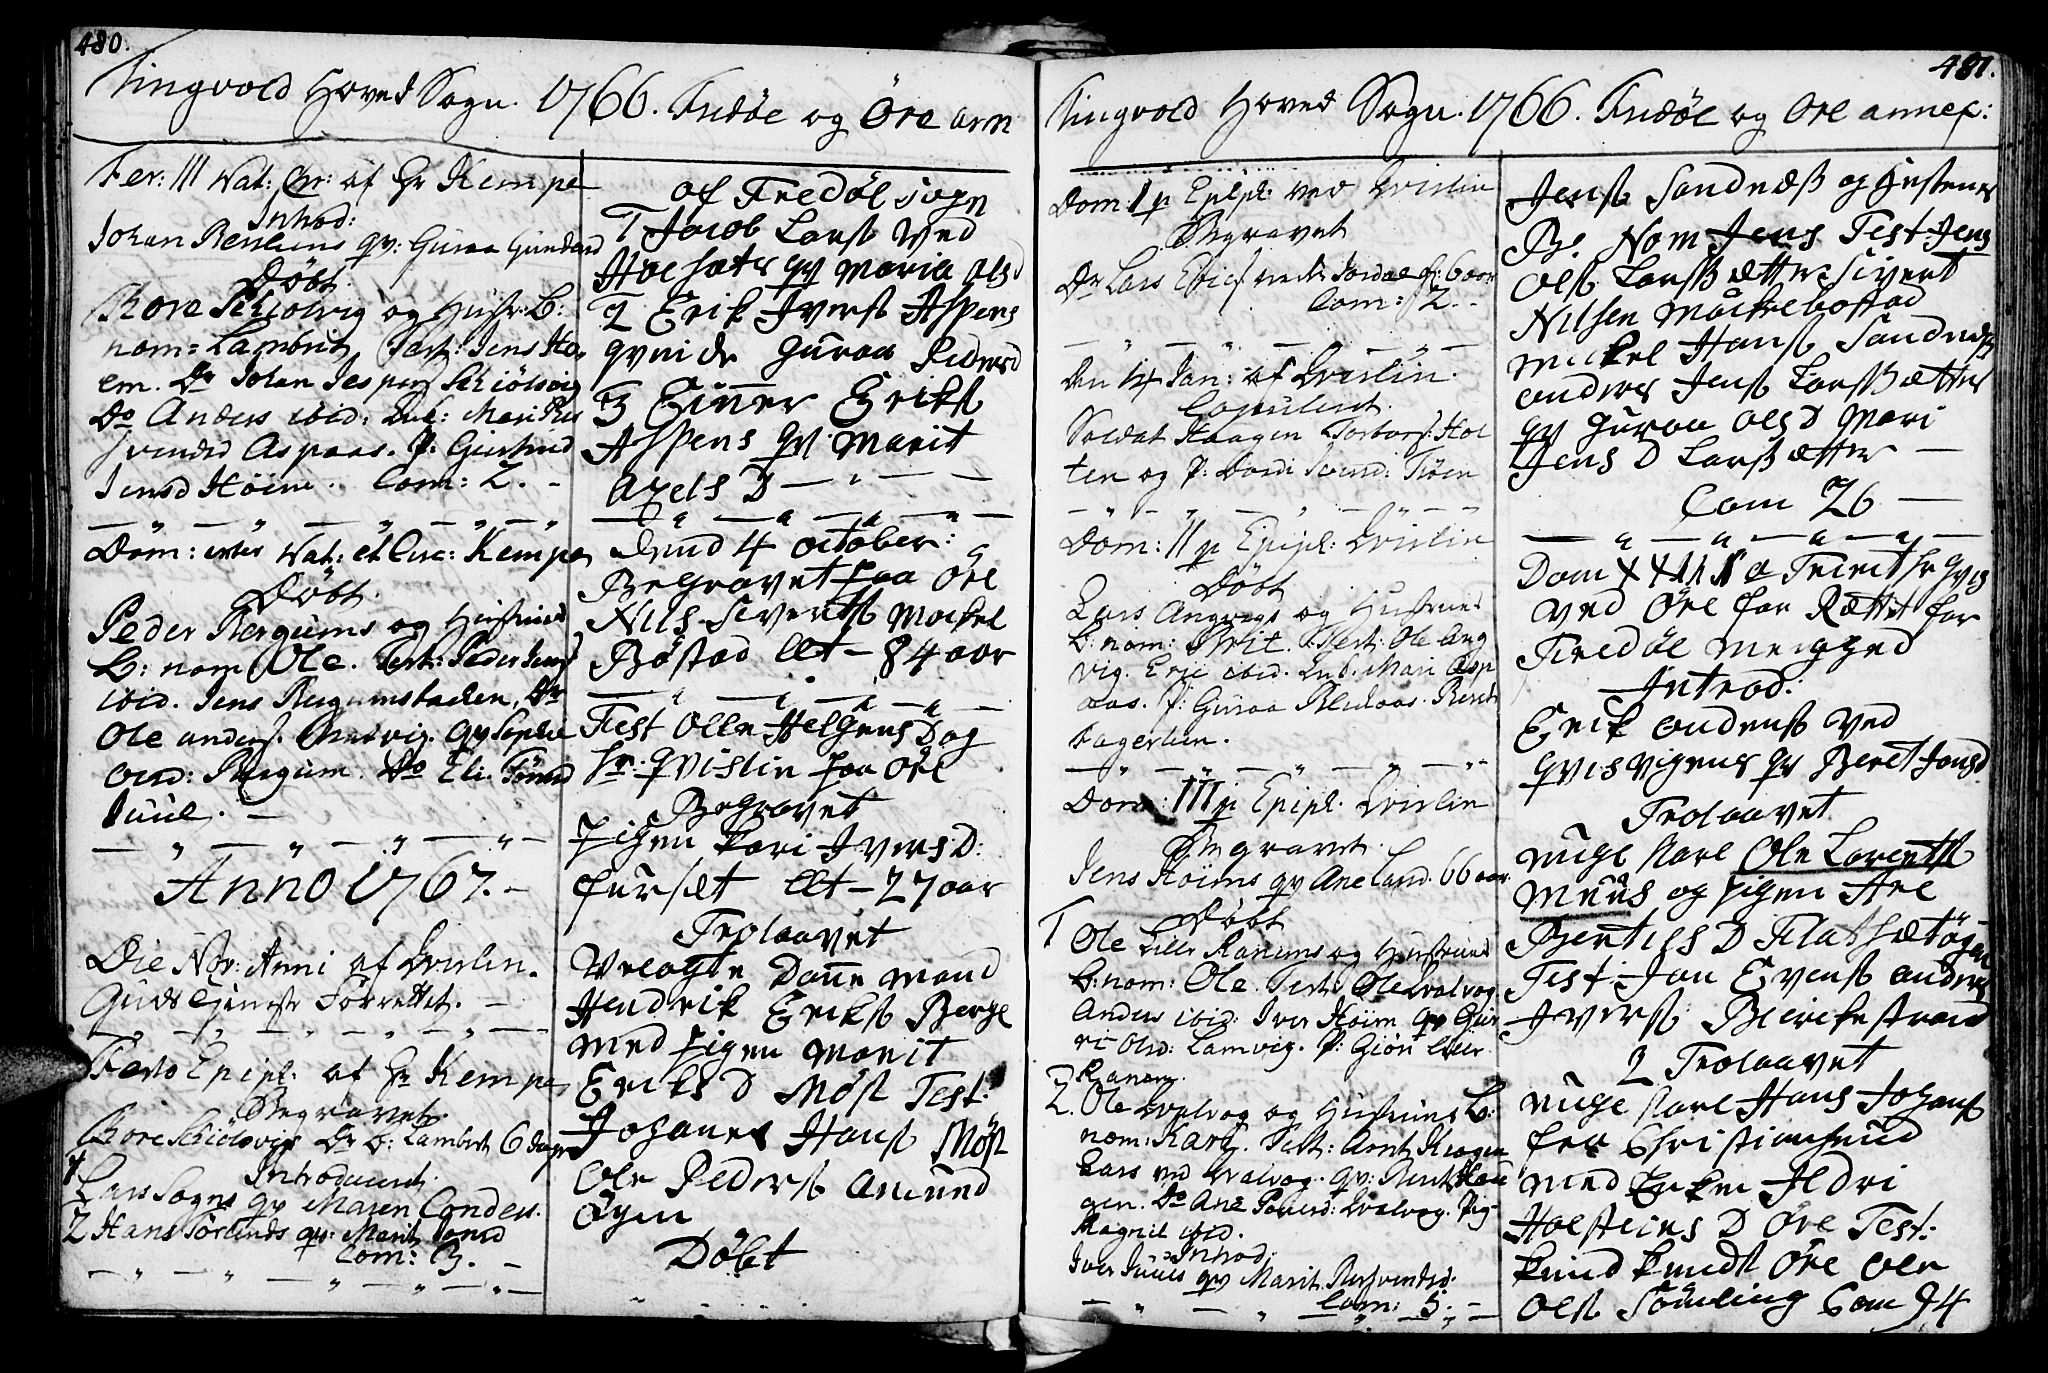 480.
Tingvold Hoved Sogn. 1766. Fredöe og Öre ann
Fer: III Nat: Chr: af Hr Kempe
Introd:
Johan Reslims qv: Guraa Gunder d
Döbt.
Tore Schiolvig og Hustr: B:
nom: Lambret Test: Jens Ho
em. Dr Johan Jespers Schiölsvig
Do Anders ibid: Enk: Mari
Aspaas. P: Giertrud
Jensd Höim. Com: 2. -
Dom: inter Nat: et Circ: Kempe
Döbt.
Peder Bergums og Hustrues
B: nom Ole. Test: Peder Jens
ibid. Jens Bergumstaden, Dr
Ole anders. qv Sophie
ibid: Bergum. Do Eli
Juul. -
Anno 1767. -
Die Nov: Anni af Qvislin.
Guds Tjeneste Forrettet. -
Festo Epiph: af Hr Kempe
Begravet.
Tore Schiölsvigs Dr B: Lambrecht 6 dage
Introducerede.
1 Lars Sogns qv Maren Conders.
2 Hans Torlinds qv: Marit Jonsd
Com: 3. -
af Fredöe sogn
1 Jacob Larss ved
Hoe sæter qv Maria Olsd
2 Erik Iverss Aspens
qvinde Guraa Pedersd
3 Einer Erikss
Aspens qv: Marit
Axels D
dend 4 october:
Begravet paa Öre
Nils Siverss Mockel
Böstad Æt - 84 aar
Fest Olle Helgens Dag
hr: qvislin paa Öre
Begravet
Pigen Kari IversD:
Furset Æt - 27 aar
Trolaavet
Velagte Danne mand
Hendrik Erikss Berge
med pigen Marit
Eriks D Möst Test:
Johanes Hanss Möst
Ole Pederss Amund
Öyen
Döbt
481.
Tingvold Hoved Sogn. 1766. Fredöe og Öre annex:
Dom: I p Epiph: ved Qvislin
Begravet
Dr Lars Erics. Jordal 6 aar
Com: 12.
den 14 Jan: af Qvislin.
Copuleret.
Soldat Haagen Tostens: Hol
ten og P: Tordi Iversd: Töen
Dom: II p Epiph: Qvislin
Döbt
Lars Angvigs og Hustrues
B: nom: Brit. Test: Ole Ang
vig. Eric ibid. Enk. Mari Asp
aas. P: Guraa Bledaas. Beret
Fagerlien.
Dom: III p Epiph. Qvislin
Begravet.
Jens Höims qv Ane Land. 66 aar
Döbt
1 Ole Lille Kanems og Hustrues
B: nom: Ole. Test: Ole Qvalvog
Anders ibid: Iver Höim qv Gu
ri Olsd: Lamvig. P: Giöri Lille
Kanem.
2. Ole Qvalvog og Hustrues B:
nom: Kari. Test: Arnt Krogen
Lars ved Qvalvog. qv: Beret
gen. Do Ane Povelsd: Qvalvog. Pig
Magnil ibid.
Introd:
Iver Juuls qv Marit
Com: 5. -
Jenss Sandnæss og Hustrues
B. Nom Jens Test Jens
Olss Larssætter Sivert
Nilsen Mockelbostad
Mickel Hanss Sandnæss
anders Jenss Larssætter
qv Guraa OlsD Mari
Jens D Larssætter
Com 26
Dom a Trinit hr Qvis
ved Öre for Rættet for
Fredöe meniged
Introd:
Erik anderss ved
Qvisvigens qv Beret Jonsd
Trolaavet
unge Karl Ole Larentss
Meüs og pigen Are
Bertels D Flatsetöyen
Test Jon Evenss anders
Iverss Bierckestrand
2 Trolaavet
unge Karl Hans Johans
fra Christiansund
med Enken Ildri
Holstens D Öre Test:
Knud Knudss Öre Ole
Olss Sömling Com 94